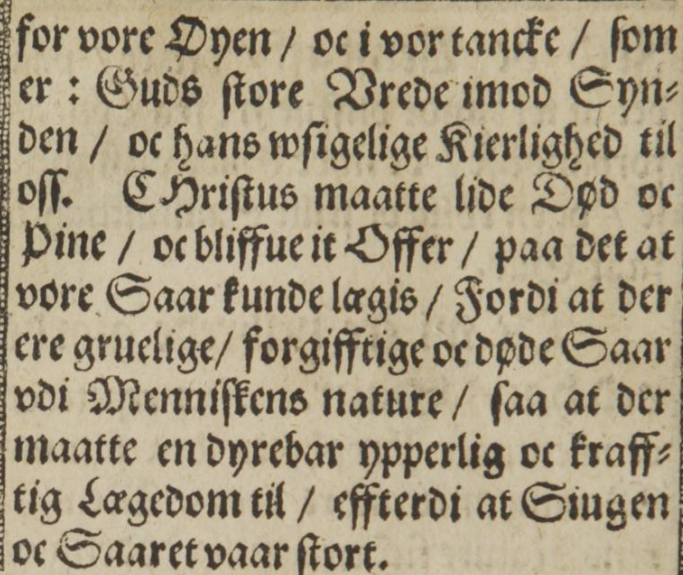 for vore Øyen / oc i vor tancke / som
er : Guds store Vrede imod Syn⸗
den / oc hans wsigelige Kierlighed til
oss. CHristus maatte lide Død oc
Pine / oc bliffue it Offer / paa det at
vore Saar kunde lægis / Fordi at der
ere gruelige / forgifftige oc døde Saar
vdi Menniskens nature / saa at der
maatte en dyrebar ypperlig oc kraff⸗
tig Lægedom til / effterdi at Siugen
oc Saaret vaar stort.